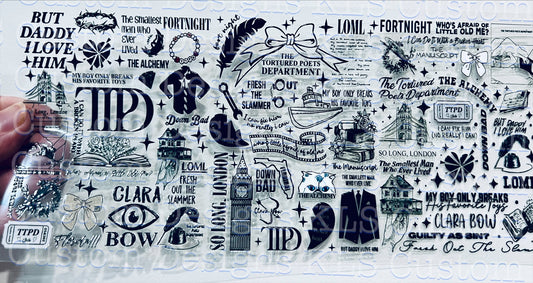 BUT
DADDY
I LOVE
HIM
The Smallest
man who
Ever
Lived
FORTNIGHT
THE ALCHEMY
MY BOY ONLY BREAKS
HIS FAVORITE TOYS
TTPD
Down Bad
LOML
FRESH
OUT THE
SLAMMER
CLARA
BOW
TTPD
So Long, London
for night
THE
TORTURED POETS
DEPARTMENT
FRESH
OUT THE
SLAMMER
I can fix him
no really i can
SO LONG, LONDON
DOWN
BAD
TTPD
LOML
MY BOY ONLY BREAKS
HIS FAVORITE TOYS
The Manuscript
THE ALCHEMY
BUT DADDY I LOVE HIM
FORTNIGHT
WHO'S AFRAID OF
LITTLE OLD ME?
I Can Do It With a Broken Heart
THE
MANUSCRIPT
The Tortured
Poets Department
THE ALCHEMY
TTPD
I CAN FIX HIM
(NO REALLY I CAN)
SO LONG, LONDON
The Smallest Man
Who Ever Lived
DOWN BAD
BUT DADDY
I LOVE HIM
LOML
MY BOY ONLY BREAKS
His Favorite Toys
CLARA BOW
GUILTY AS SIN?
Fresh Out The Slam
Custom Designs KLS